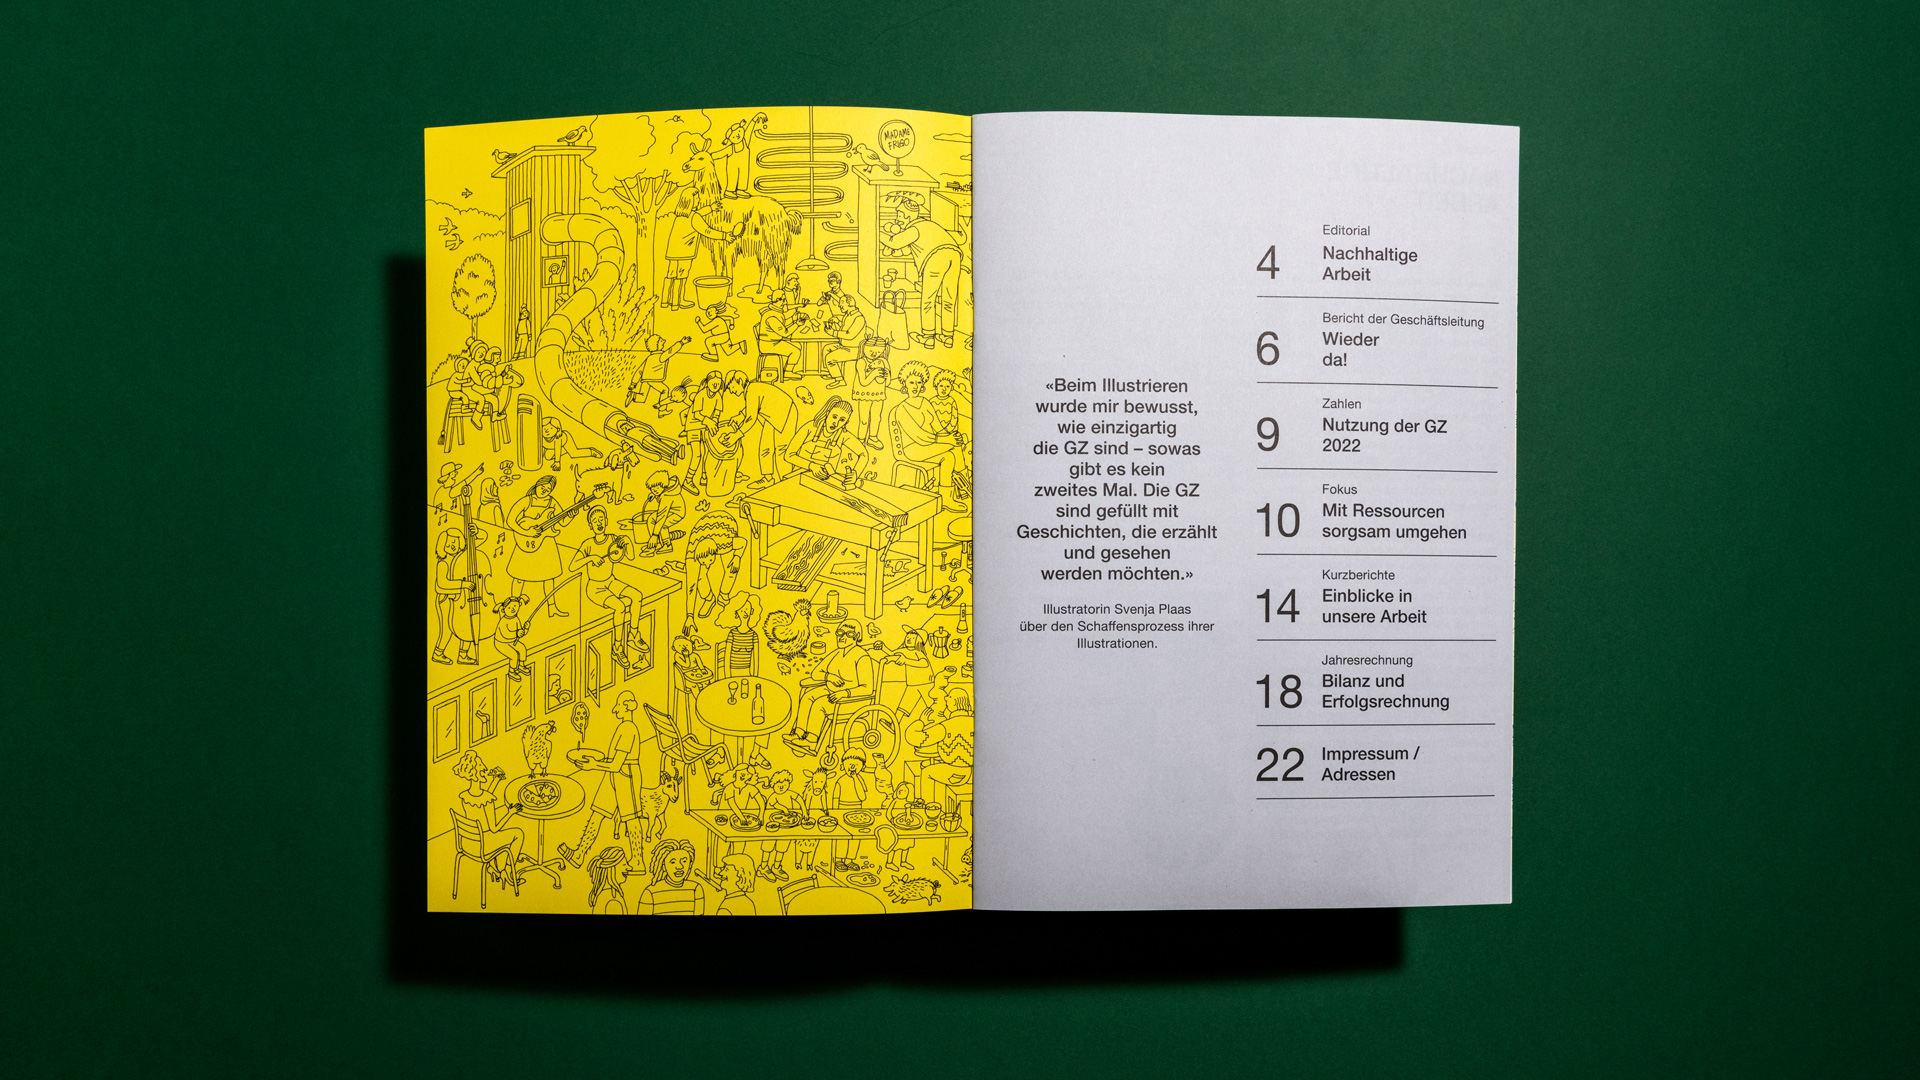 MADAME
FRIGO
«Beim Illustrieren
wurde mir bewusst,
wie einzigartig
die GZ sind – sowas
gibt es kein
zweites Mal. Die GZ
sind gefüllt mit
Geschichten, die erzählt
und gesehen
werden möchten.»
Illustratorin Svenja Plaas
über den Schaffensprozess ihrer
Illustrationen.
4
Editorial
Nachhaltige
Arbeit
6
Bericht der Geschäftsleitung
Wieder
da!
9
Zahlen
Nutzung der GZ
2022
10
Fokus
Mit Ressourcen
sorgsam umgehen
14
Kurzberichte
Einblicke in
unsere Arbeit
18
Jahresrechnung
Bilanz und
Erfolgsrechnung
22
Impressum /
Adressen